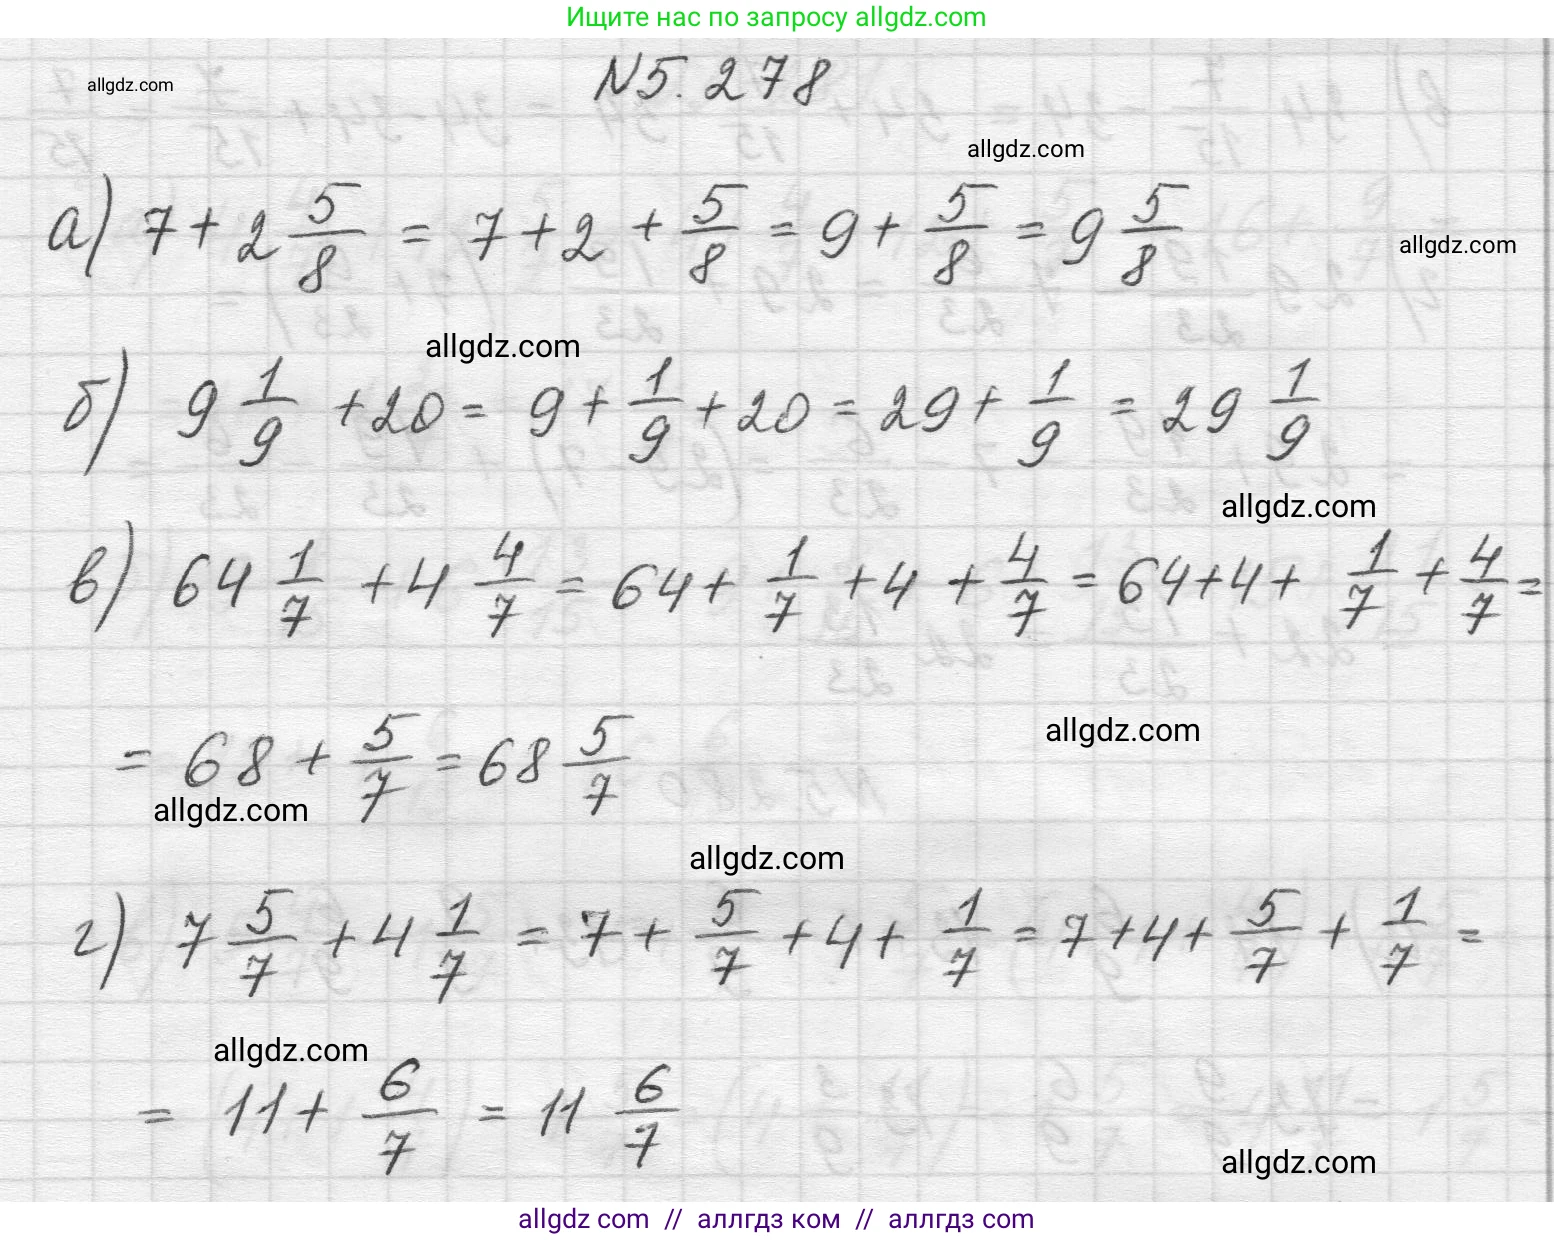 Ищите нас по запросу allgdz.com
allgdz.com
№5.278
allgdz.com
а) 7 + 2 5/8 = 7 + 2 + 5/8 = 9 + 5/8 = 9 5/8
allgdz.com
allgdz.com
б) 9 1/9 + 20 = 9 + 1/9 + 20 = 29 + 1/9 = 29 1/9
allgdz.com
в) 64 1/7 + 4 4/7 = 64 + 1/7 + 4 + 4/7 = 64 + 4 + 1/7 + 4/7 =
= 68 + 5/7 = 68 5/7
allgdz.com
allgdz.com
allgdz.com
г) 7 5/7 + 4 1/7 = 7 + 5/7 + 4 + 1/7 = 7 + 4 + 5/7 + 1/7 =
allgdz.com
= 11 + 6/7 = 11 6/7
allgdz.com
allgdz com // аллгдз ком // аллгдз com